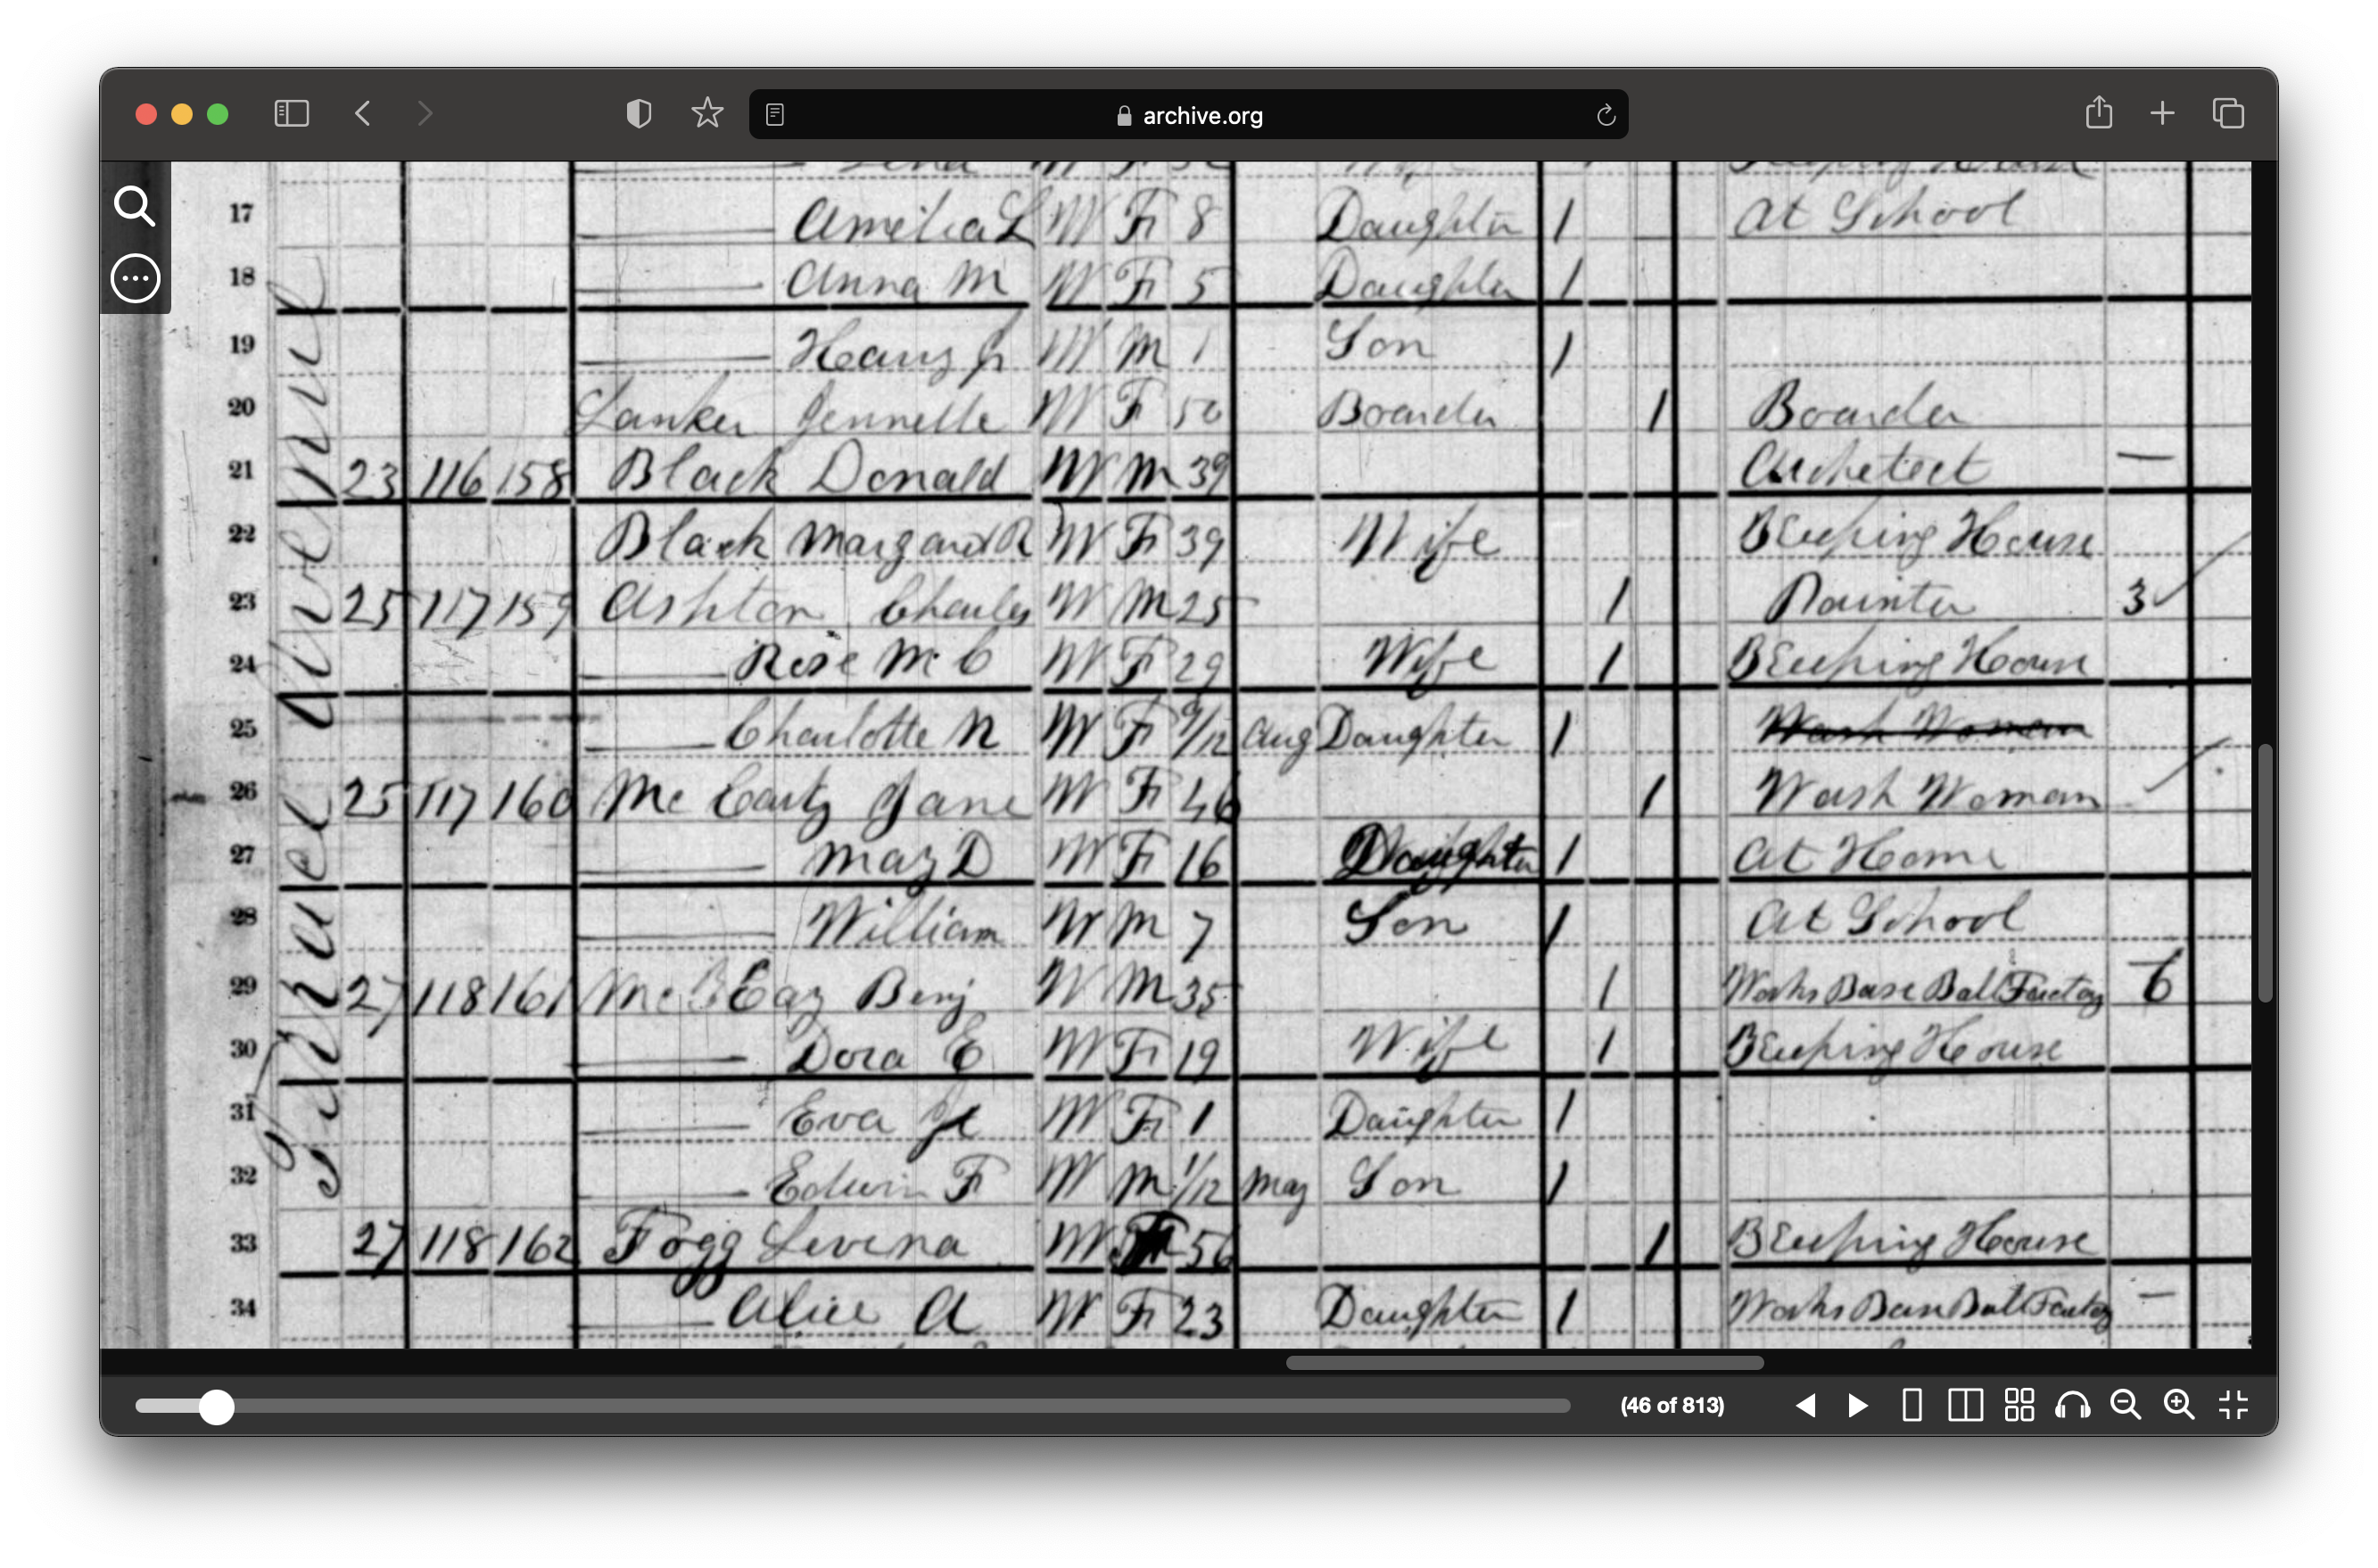 archive.org
17 Amelia L W F 8 Daughter 1 At School
18 Anna M W F 5 Daughter 1
19 W M 1 Son 1
20 Jennette W F 50 Boarder 1 Boarder
21 23 116 158 Black Donald W M 39 Architect —
22 Black Margaret R W F 39 Wife Keeping House
23 25 117 159 Ashton Charles W M 25 1 Painter 3
24 Rose Mc C W F 29 Wife 1 Keeping House
25 Charlotte N W F 9/12 Aug Daughter 1 Wash Woman
26 25 117 160 Mc Carty Jane W F 46 1 Wash Woman
27 May D W F 16 Daughter 1 At Home
28 William W M 7 Son 1 At School
29 27 118 161 Benj W M 35 1 Works Base Ball Factory 6
30 Dora E W F 19 Wife 1 Keeping House
31 Eva W F 1 Daughter 1
32 Edwin F W M 1/12 May Son 1
33 27 118 162 Fogg Levina W F 56 1 Keeping House
34 Alice A W F 23 Daughter 1 Works Base Ball Factory —
Avenue
(46 of 813)